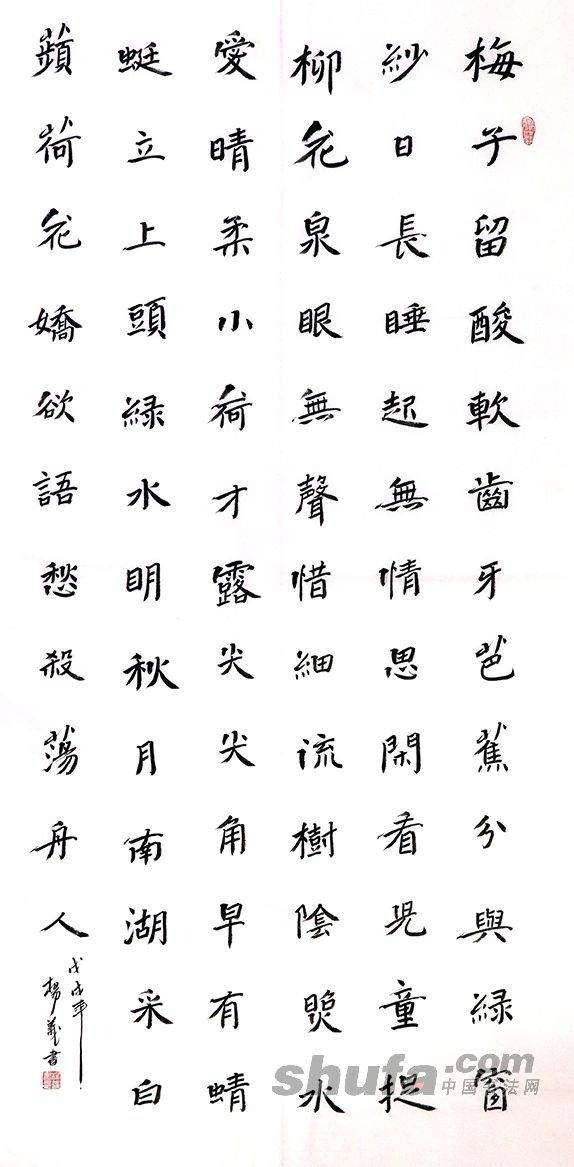 梅子留酸軟齒牙芭蕉分與綠窗
紗日長睡起無情思閑看兒童捉
柳花泉眼無聲惜細流樹陰照水
愛晴柔小荷才露尖尖角早有蜻
蜓立上頭綠水明秋月南湖采白
蘋荷花嬌欲語愁殺蕩舟人
戊戌年
楊義書
shufa.com
中国书法网